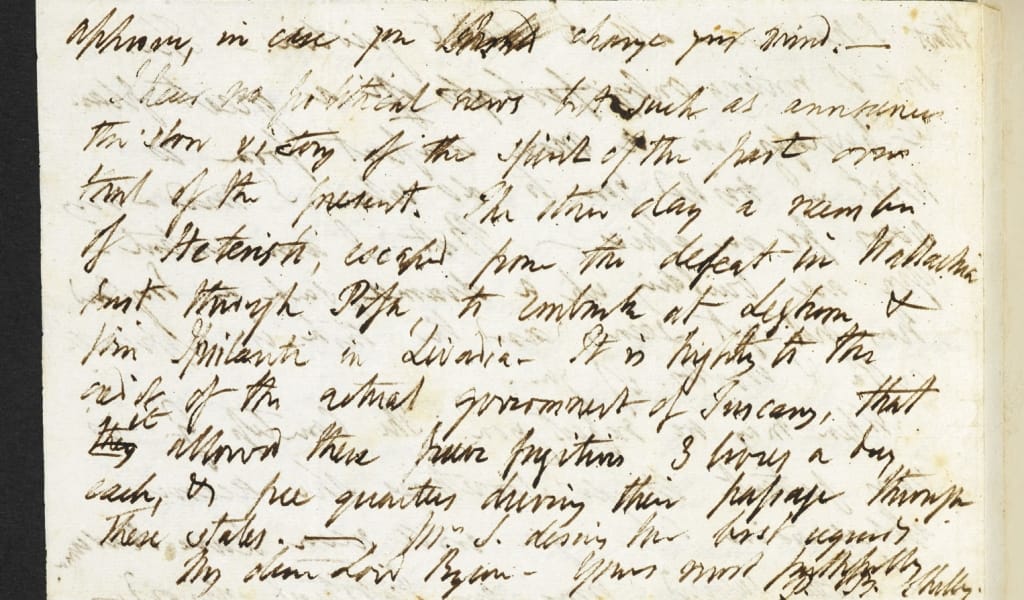 approve, in case you should change your mind. —
I hear no political news but such as announces
the slow victory of the spirit of the past over
that of the present. The other day a number
of Heteristi, escaped from the defeat in Wallachia
past through Pisa, to embark at Leghorn &
join Ipsilanti in Livadia - It is highly to the
credit of the actual government of Tuscany, that
it allowed these brave fugitives 3 livres a day
each, & free quarters during their passage through
these states. — Mrs S. desires her best regards
My dear Lord Byron - Yours most faithfully
P. B. Shelley.